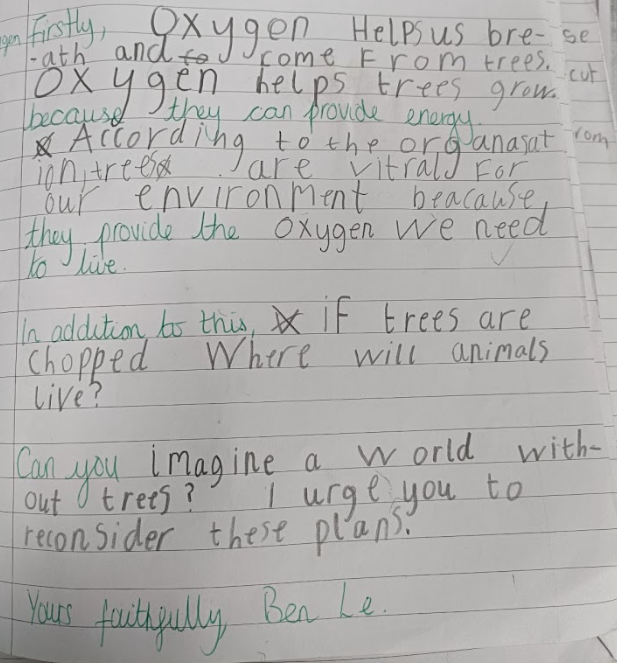 gen Firstly, Oxygen Helps us bre- se
-ath and to come From trees. cut
Oxygen helps trees grow.
because they can provide energy.
According to the organasat rom
ion, trees are vitral For
our environment beacause
they provide the oxygen we need
to live.
In addition to this, if trees are
chopped Where will animals
live?
Can you imagine a world with-
out trees? I urge you to
reconsider these plans.
Yours faithfully, Ben Le.